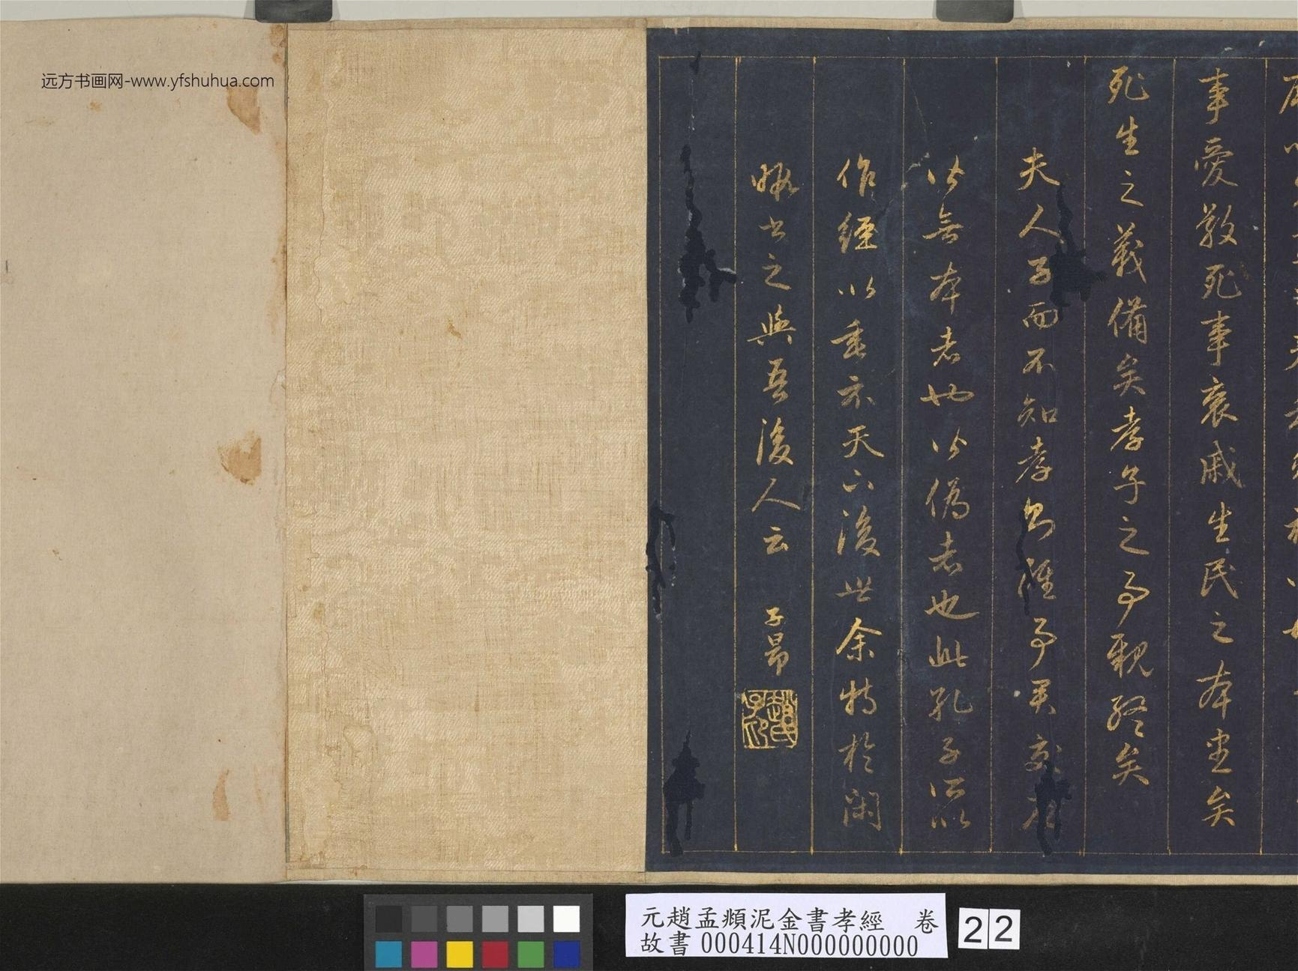 远方书画网-www.yfshuhua.com
事愛敬死事哀戚生民之本盡矣
死生之義備矣孝子之事親終矣
夫人子而不知孝則雖事君交友
皆無本者也皆偽者也此孔子所以
作經以垂示天下後世余特於閑
暇書之與吾後人云 子昂
趙氏子昂
元趙孟頫泥金書孝經 卷
故書 000414N000000000
22